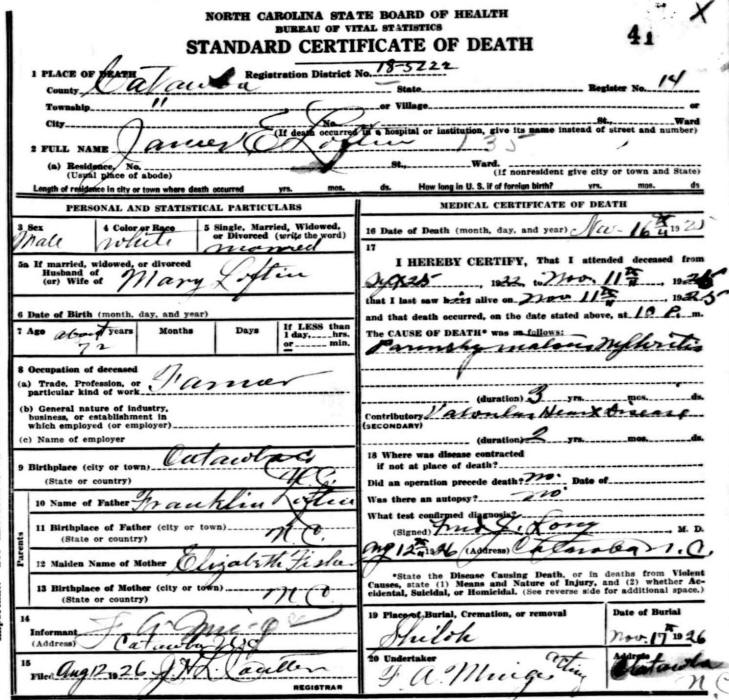 X
NORTH CAROLINA STATE BOARD OF HEALTH
BUREAU OF VITAL STATISTICS
STANDARD CERTIFICATE OF DEATH
41
1 PLACE OF DEATH Registration District No. 18-5222
County Catawba State Register No. 14
Township " or Village or
City No. St., Ward
(If death occurred in a hospital or institution, give its name instead of street and number)
2 FULL NAME James E. Loftin
(a) Residence, No. St., Ward.
(Usual place of abode) (If nonresident give city or town and State)
Length of residence in city or town where death occurred yrs. mos. ds. How long in U. S. if of foreign birth? yrs. mos. ds.
PERSONAL AND STATISTICAL PARTICULARS
3 Sex 4 Color or Race 5 Single, Married, Widowed, or Divorced (write the word)
Male White Married
5a If married, widowed, or divorced
Husband of
(or) Wife of Mary Loftin
6 Date of Birth (month, day, and year)
7 Age about years Months Days If LESS than 1 day, hrs. or min.
72
8 Occupation of deceased
(a) Trade, Profession, or particular kind of work Farmer
(b) General nature of industry, business, or establishment in which employed (or employer)
(c) Name of employer
9 Birthplace (city or town) Catawba Co
(State or country) N.C.
Parents
10 Name of Father Franklin Loftin
11 Birthplace of Father (city or town)
(State or country) N C.
12 Maiden Name of Mother Elizabeth Fisher
13 Birthplace of Mother (city or town)
(State or country) N C
14
Informant F A
(Address) Catawba N C
15
Filed Aug 12 1926
REGISTRAR
MEDICAL CERTIFICATE OF DEATH
16 Date of Death (month, day, and year) Nov 16 1925
17
I HEREBY CERTIFY, That I attended deceased from
1922 to Nov. 11 1925
that I last saw him alive on Nov 11 1925
and that death occurred, on the date stated above, at 10 P. m.
The CAUSE OF DEATH* was as follows:
Nephritis
(duration) 3 yrs. mos. ds.
Contributory Valvular Heart Disease
(SECONDARY)
(duration) 2 yrs. mos. ds.
18 Where was disease contracted
if not at place of death?
Did an operation precede death? No. Date of
Was there an autopsy? no
What test confirmed diagnosis?
(Signed) Fred Y. Long M. D.
Aug 12 1926 (Address) Catawba N. C.
*State the Disease Causing Death, or in deaths from Violent
Causes, state (1) Means and Nature of Injury, and (2) whether Accidental, Suicidal, or Homicidal. (See reverse side for additional space.)
19 Place of Burial, Cremation, or removal Date of Burial
Shiloh Nov. 17 1926
20 Undertaker Address
F A Catawba
N C